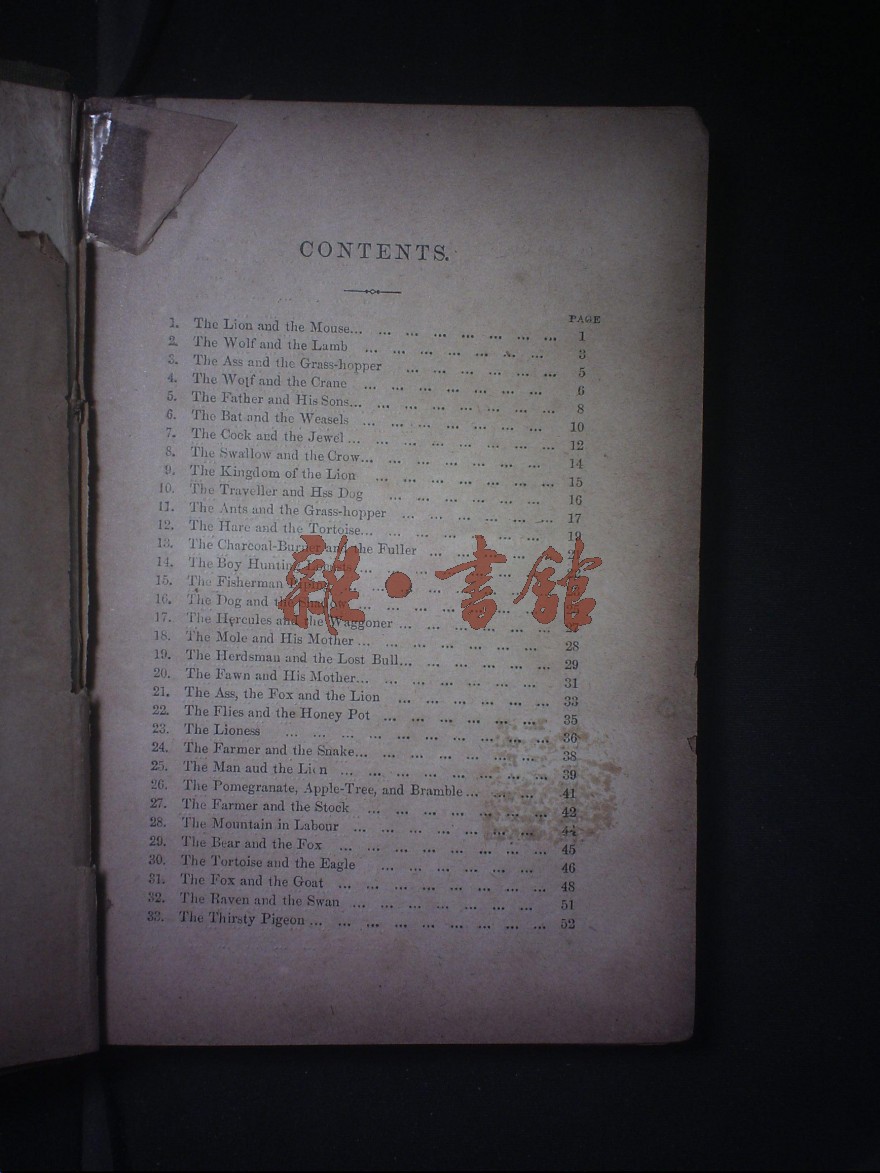 CONTENTS.
PAGE
1. The Lion and the Mouse... ... ... ... ... ... ... 1
2. The Wolf and the Lamb ... ... ... ... ... ... ... 3
3. The Ass and the Grass-hopper ... ... ... ... ... ... 5
4. The Wolf and the Crane ... ... ... ... ... ... ... 6
5. The Father and His Sons... ... ... ... ... ... ... ... 8
6. The Bat and the Weasels ... ... ... ... ... ... ... 10
7. The Cock and the Jewel ... ... ... ... ... ... ... ... 12
8. The Swallow and the Crow... ... ... ... ... ... ... 14
9. The Kingdom of the Lion ... ... ... ... ... ... ... 15
10. The Traveller and Hss Dog ... ... ... ... ... ... 16
11. The Ants and the Grass-hopper ... ... ... ... ... ... 17
12. The Hare and the Tortoise... ... ... ... ... ... ... 19
13. The Charcoal-Burner and the Fuller ... ... ... ... ...
14. The Boy Hunting ...
15. The Fisherman Piping ...
16. The Dog and the Shadow ...
17. The Hercules and the Waggoner ... ... ... ... ... ...
18. The Mole and His Mother ... ... ... ... ... ... ... 28
19. The Herdsman and the Lost Bull... ... ... ... ... ... 29
20. The Fawn and His Mother... ... ... ... ... ... ... 31
21. The Ass, the Fox and the Lion ... ... ... ... ... ... 33
22. The Flies and the Honey Pot ... ... ... ... ... ... 35
23. The Lioness ... ... ... ... ... ... ... ... ... ... 36
24. The Farmer and the Snake... ... ... ... ... ... ... 38
25. The Man aud the Lion ... ... ... ... ... ... ... ... 39
26. The Pomegranate, Apple-Tree, and Bramble ... ... ... 41
27. The Farmer and the Stock ... ... ... ... ... ... ... 42
28. The Mountain in Labour ... ... ... ... ... ... ... 44
29. The Bear and the Fox ... ... ... ... ... ... ... ... ... 45
30. The Tortoise and the Eagle ... ... ... ... ... ... 46
31. The Fox and the Goat ... ... ... ... ... ... ... ... 48
32. The Raven and the Swan ... ... ... ... ... ... ... 51
33. The Thirsty Pigeon ... ... ... ... ... ... ... ... ... 52
雜·書館